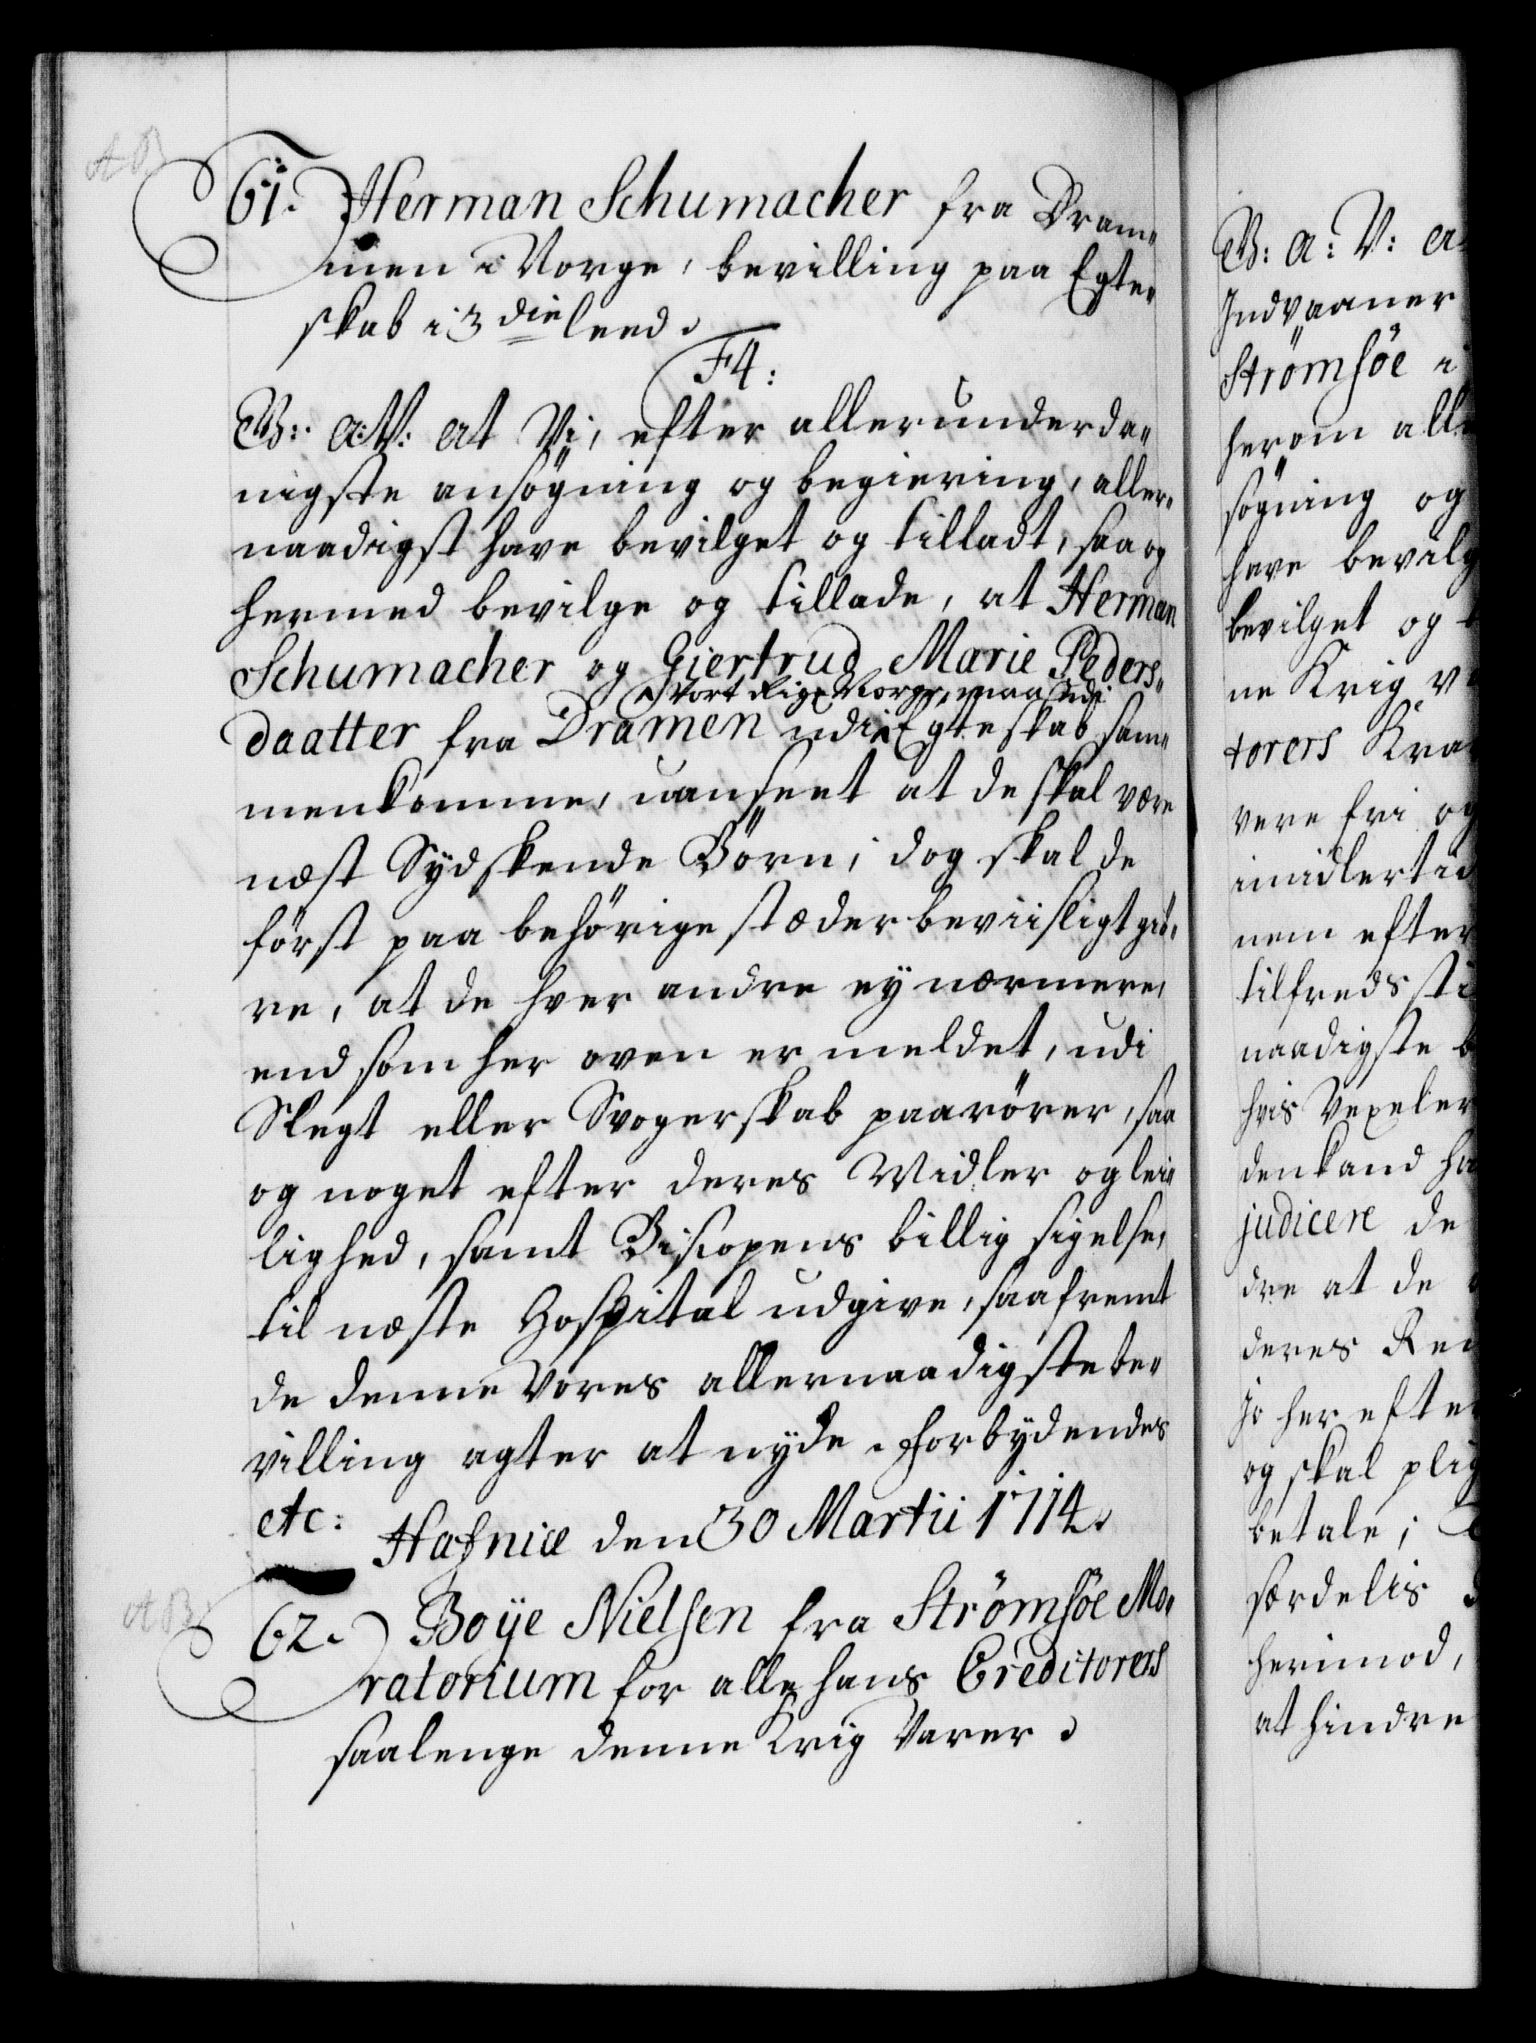 AB
61. Herman Schumacher fra Dram„
men i Norge, bevilling paa Egte„
skab i 3 die leed.
F4:
W: A:V: At Vi, efter allerunderda„
nigste ansögning og begiering, aller„
naadigst have bevilget og tilladt, saa og
hermed bevilge og tillade, at Herman
Schumacher og Giertrud Marie Peders„
i Vort Rige Norge, maa udi
daatter fra Dramen udi Egteskab sam„
menkomme, uanseet at de skal være
næst Sydskende Börn; dog skal de
först paa behörige stæder beviisligt giö„
re, at de hver andre ey nærmere,
end som her oven er meldet, udi
Slegt eller Svogerskab paarörer, saa
og noget efter deres Midler og lei„
lighed, samt Biscopens billig sigelse,
til næste Hospital udgive, saafremt
de denne Vores allernaadigste be„
villing agter at nyde. Forbydendes
etc: Hafniæ den 30 Martii 1714.
AB
62. Boye Nielsen fra Strömsöe Mo„
ratorium for alle hans Creditorers
saalenge denne Krig Varer.
W: A: V: A
Indvaaner
Strömsöe i
herom all
sögning og
have bevilg
bevilget og
ne Krig v
torers Kra
vere fri og
imidlertid
nem efter
tilfreds sti
naadigste b
hvis Vexeler
denkand ha
judicere de
dre at de
deres Re
jo her efte
og skal plig
betale;
særdelis
herimod,
at hindre